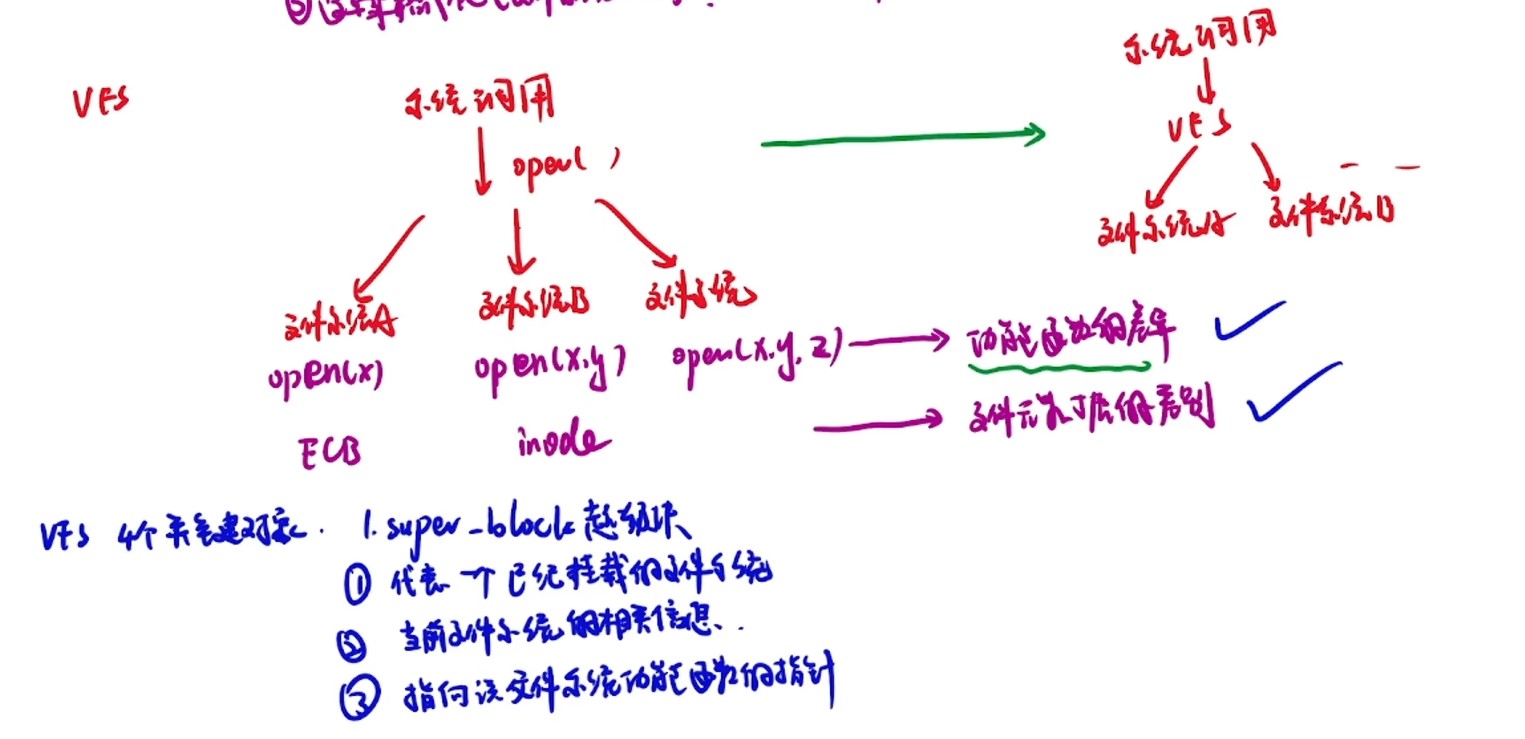 VFS
系统调用
open( )
文件系统A 文件系统B 文件系统
open(x) open(x,y) open(x,y,z) 功能函数的差异
FCB inode 文件元数据的差别
系统调用
VFS
文件系统A 文件系统B
VFS 4个关键对象. 1.super-block超级块
① 代表一个已经挂载的文件系统
② 当前文件系统的相关信息.
③ 指向该文件系统功能函数的指针